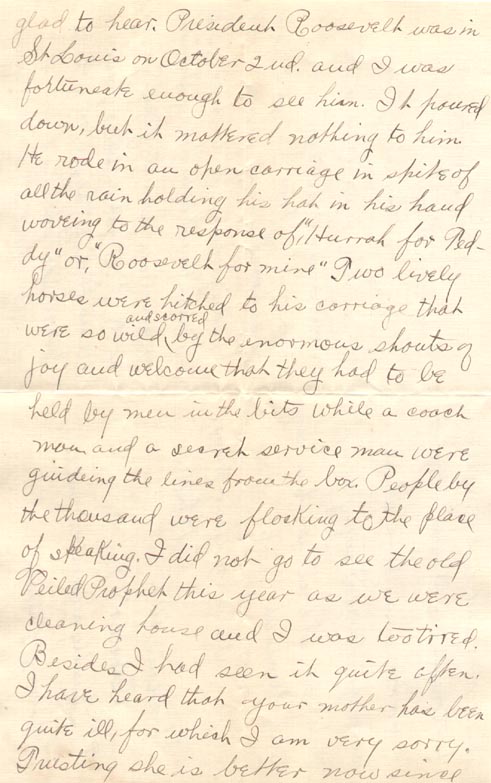 glad to hear. President Roosevelt was in
St Louis on October 2nd. and I was
fortuneate enough to see him. It poured
down, but it mattered nothing to him
He rode in an open carriage in spite of
all the rain holding his hat in his hand
waveing to the response of, "Hurrah for Ted-
dy" or, "Roosevelt for mine" Two lively
horses were hitched to his carriage that
were so wild, and scarred by the enormous shouts of
joy and welcome that they had to be
held by men in the bits while a coach
man and a secret service man were
giudeing the lines from the box. People by
the thousand were flocking to the place
of speaking. I did not go to see the old
Veiled Prophet this year as we were
cleaning house and I was too tirred.
Besides I had seen it quite often.
I have heard that your mother has been
quite ill, for which I am very sorry.
Trusting she is better now since